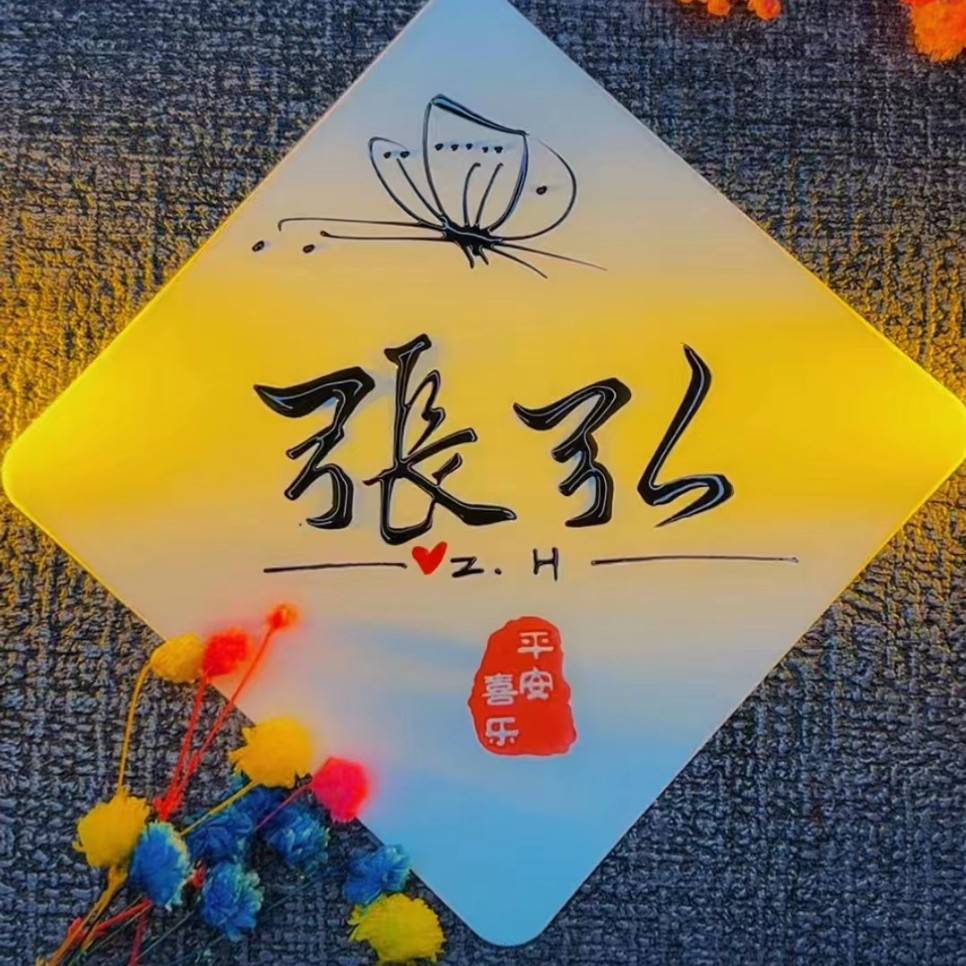 張弘
Z. H
平安
喜乐